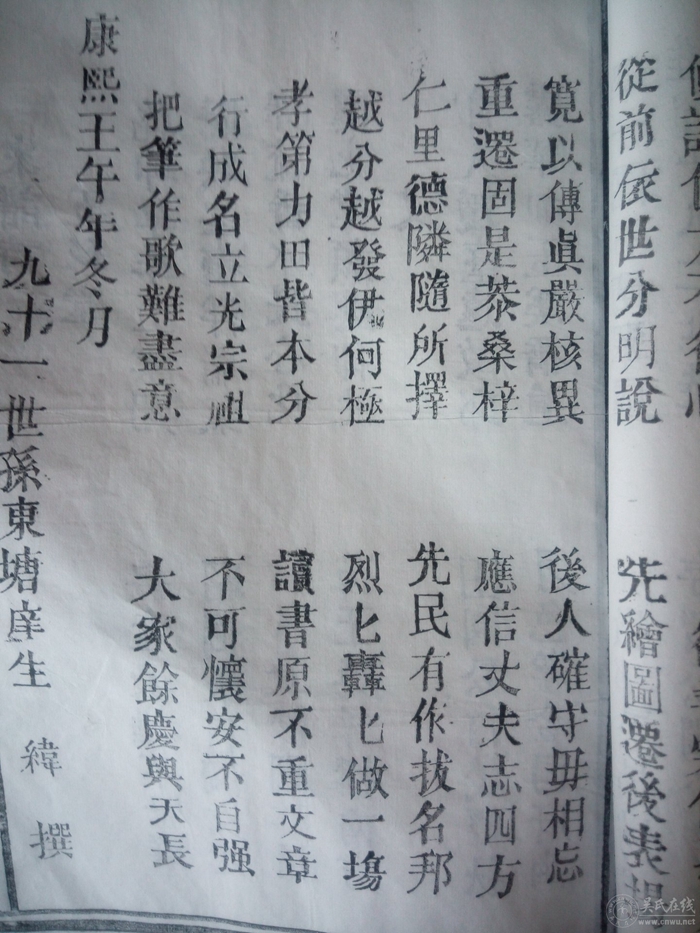 從前依世分明說　先繪圖遷後表
寬以傳眞嚴核異　後人確守毋相忘
重遷固是恭桑梓　應信丈夫志四方
仁里德隣隨所擇　先民有作拔名邦
越分越發伊何極　烈匕轟匕做一塲
孝第力田皆本分　讀書原不重文章
行成名立光宗祖　不可懷安不自强
把筆作歌難盡意　大家餘慶與天長
康熙壬午年冬月
九十一世孫東塘庠生　緯　撰
吴氏在线
www.cnwu.net